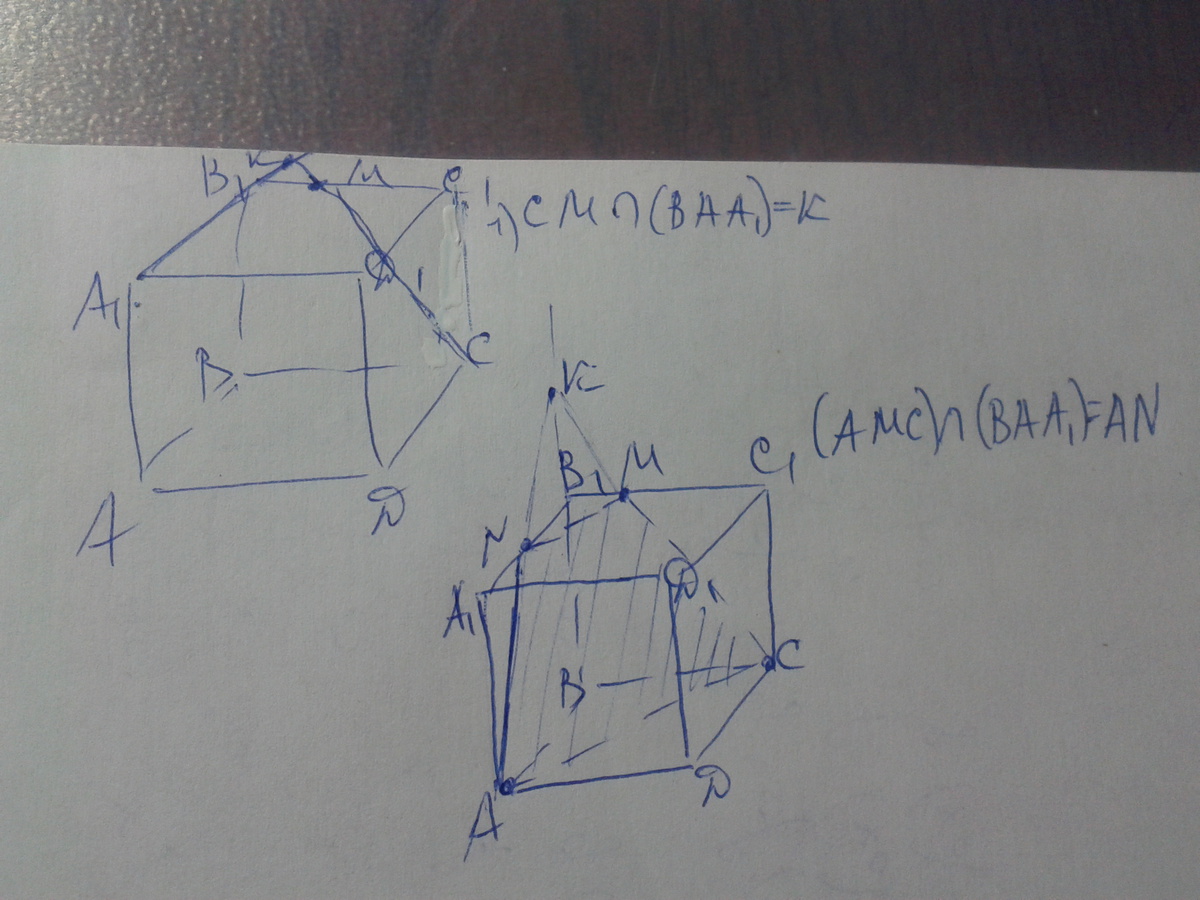 B₁ K M C₁
1) CM∩(BAA₁)=K
A₁ D₁
B C
A D
K
B₁ M C₁
(AMC)∩(BAA₁)=AN
N
A₁ D₁
B C
A D